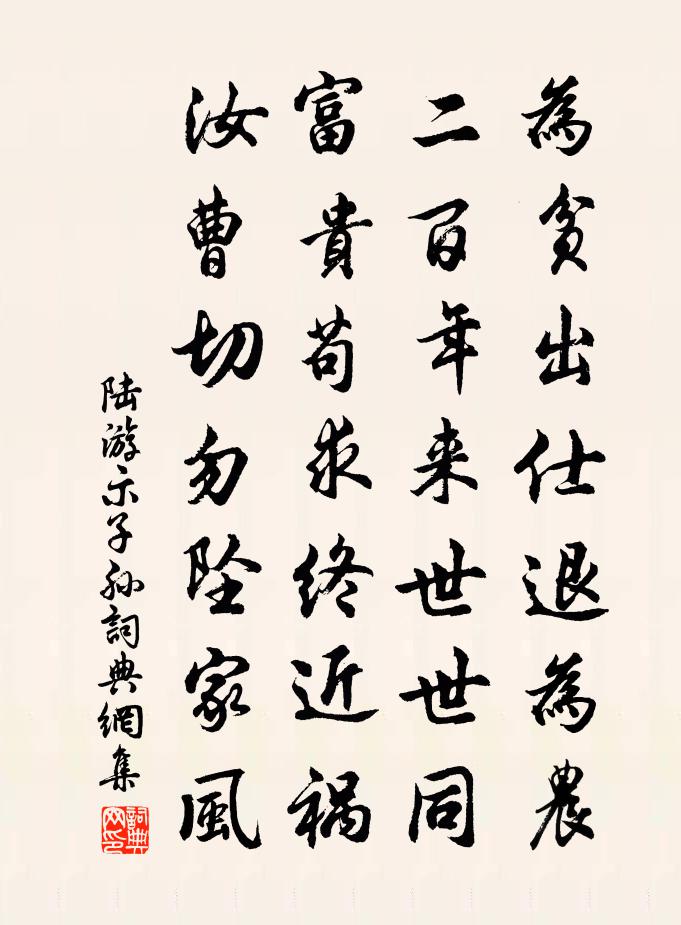 為貧出仕退為農
二百年来世世同
富貴苟求終近禍
汝曹切勿坠家風
陆游示子孙詞典網集
詞典
网印